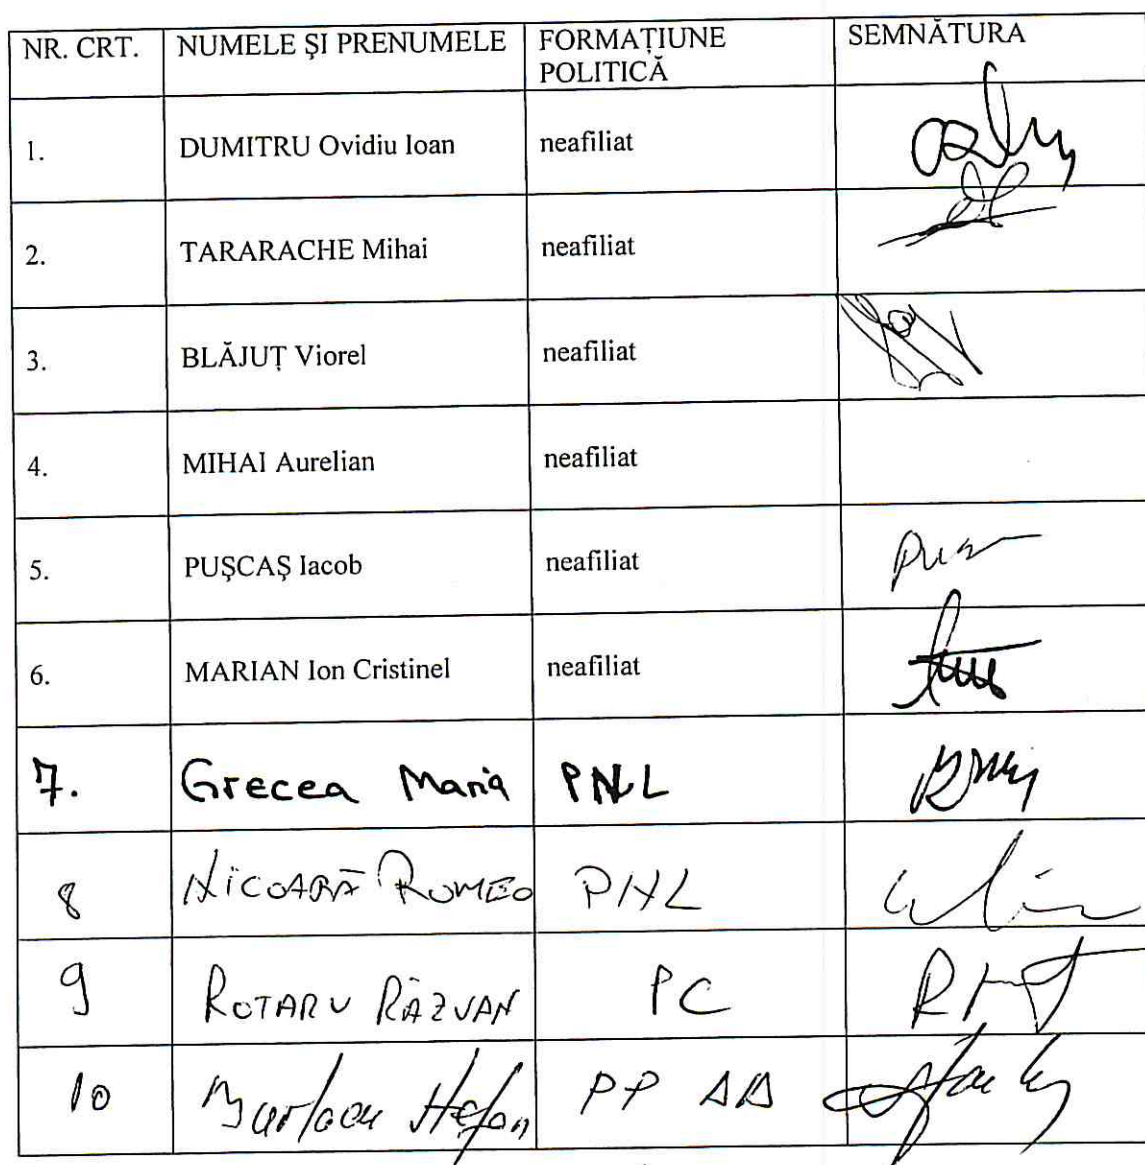 NR. CRT. NUMELE ŞI PRENUMELE FORMAŢIUNE POLITICĂ SEMNĂTURA
1. DUMITRU Ovidiu Ioan neafiliat
2. TARARACHE Mihai neafiliat
3. BLĂJUȚ Viorel neafiliat
4. MIHAI Aurelian neafiliat
5. PUŞCAŞ Iacob neafiliat
6. MARIAN Ion Cristinel neafiliat
7. Grecea Maria PNL
8 NICOARĂ ROMEO PNL
9 ROTARU RĂZVAN PC
10 Burlacu Ștefan PP DD